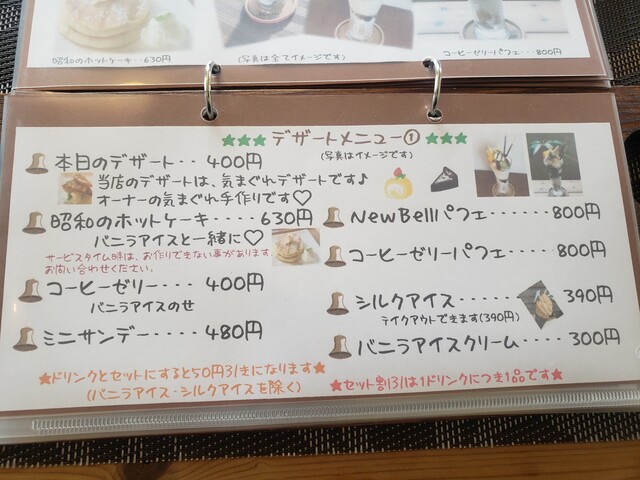 昭和のホットケーキ・・630円
(写真は全てイメージです)
コーヒーゼリーパフェ・・・800円
★★★ デザートメニュー① ★★★
(写真はイメージです)
本日のデザート・・400円
当店のデザートは、気まぐれデザートです♪
オーナーの気まぐれ手作りです♡
昭和のホットケーキ・・・・630円
バニラアイスと一緒に♡
サービスタイム時は、お作りできない事があります。
お問い合わせください。
コーヒーゼリー・・・・400円
バニラアイスのせ
ミニサンデー・・・・480円
NewBellパフェ・・・・・・800円
コーヒーゼリーパフェ・・・・800円
シルクアイス・・・・・390円
テイクアウトできます(390円)
バニラアイスクリーム・・・・300円
★ドリンクとセットにすると50円引きになります★
(バニラアイス・シルクアイスを除く)
★セット割引は1ドリンクにつき1品です★